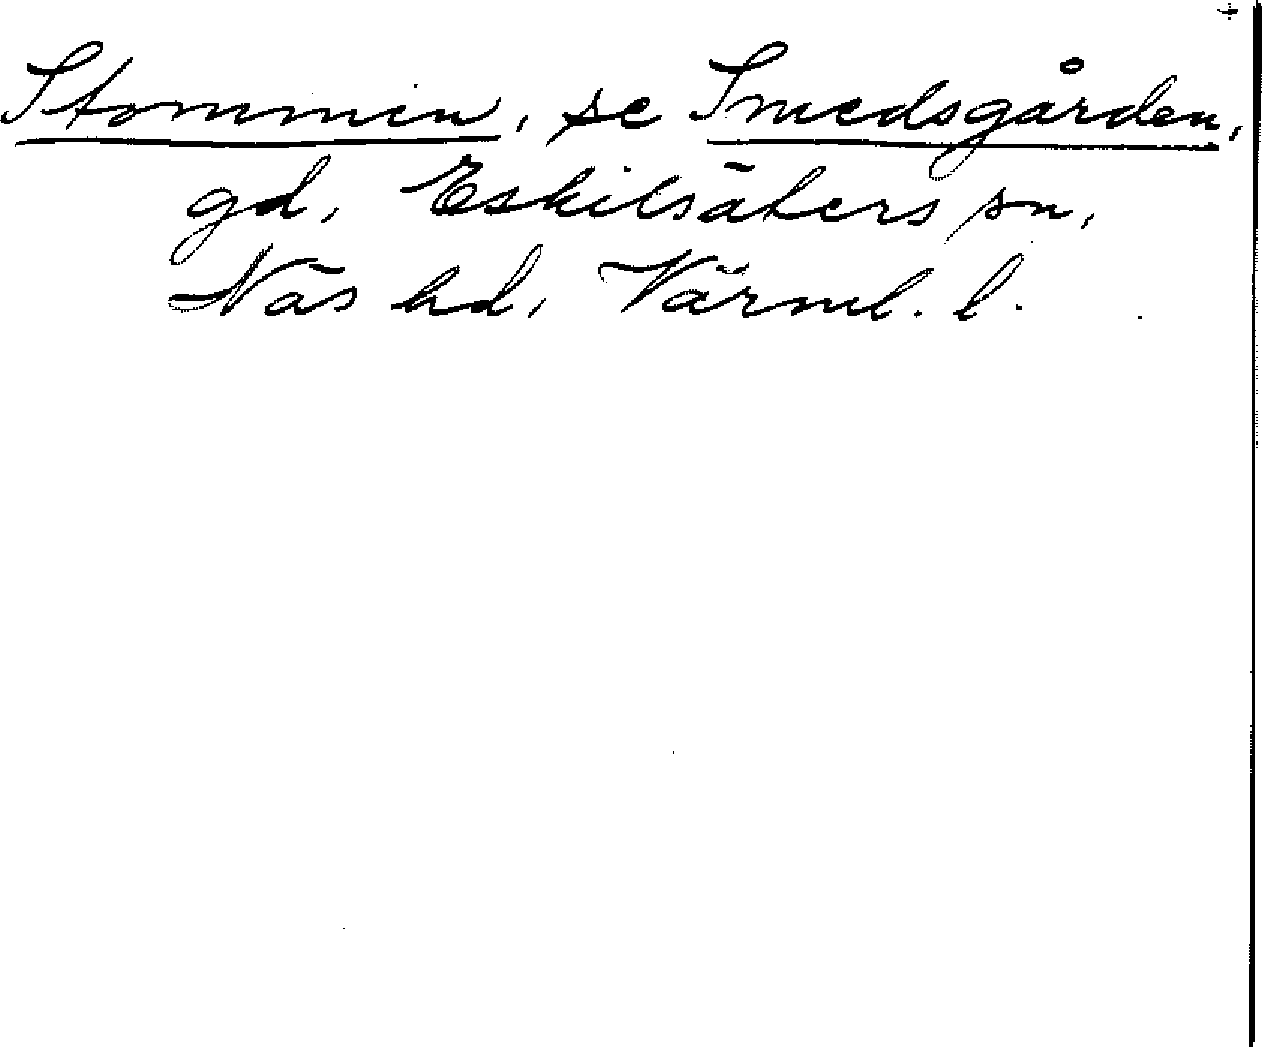 Stommen, se Smedsgården,
gd, Eskilsäters sn,
Näs hd, Värml. l.